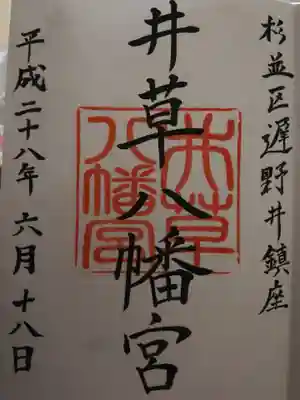 杉並区遅野井鎮座
井草八幡宮
井草八幡宮
平成二十八年六月十八日